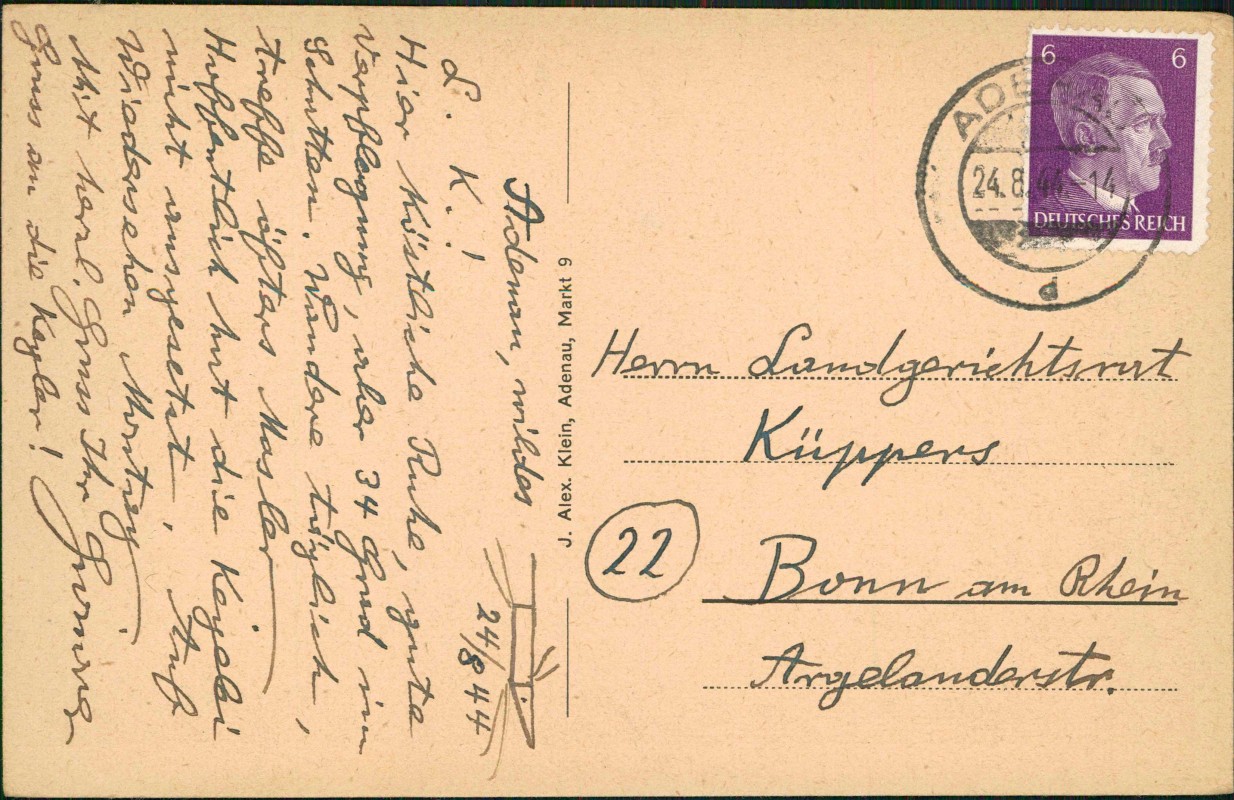 Adenau, wildes
24/8 44
L. K.!
Hier köstliche Ruhe, gute
Verpflegung, aber 34 Grad im
Schatten. Wandere täglich,
treffe öfters Mosler
Hoffentlich hat die Kegelei
nicht ausgesetzt. Auf
Wiedersehen Montag
Mit herzl. Gruss Ihr
Gruss an die Kegler!
J. Alex. Klein, Adenau, Markt 9
6 6
DEUTSCHES REICH
ADENAU
24.8.44.-14
d
Herrn Landgerichtsrat
Küppers
22
Bonn am Rhein
Argelanderstr.